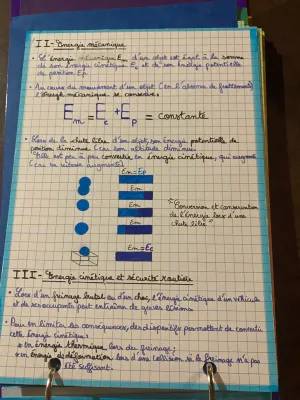 II - Energie mécanique
• L'énergie mécanique Em d'un objet est égal à la somme
de son énergie cinétique Ec et de son énergie potentielle
de position Ep.
• Au cours du mouvement d'un objet (en l'absence de frottements)
l'énergie mécanique se conserve.
Em = Ec + Ep = constante
• Lors de la chute libre d'un objet, son énergie potentielle de
position diminue (car son altitude diminue)
Elle est peu à peu convertie en énergie cinétique, qui augmente
(car sa vitesse augmente)
Em = Ep
Em
Em
Em
Em = Ec
"Conversion et conservation
de l'énergie lors d'une
chute libre"
III - Energie cinétique et sécurité routière
• Lors d'un freinage brutal ou d'un choc, l'énergie cinétique d'un véhicule
et de ses occupants peut entraîner de graves lésions.
• Pour en limiter les conséquences, des dispositifs permettent de convertir
cette énergie cinétique :
en énergie thermique lors du freinage;
en énergie de déformation lors d'une collision si le freinage n'a pas
été suffisant.